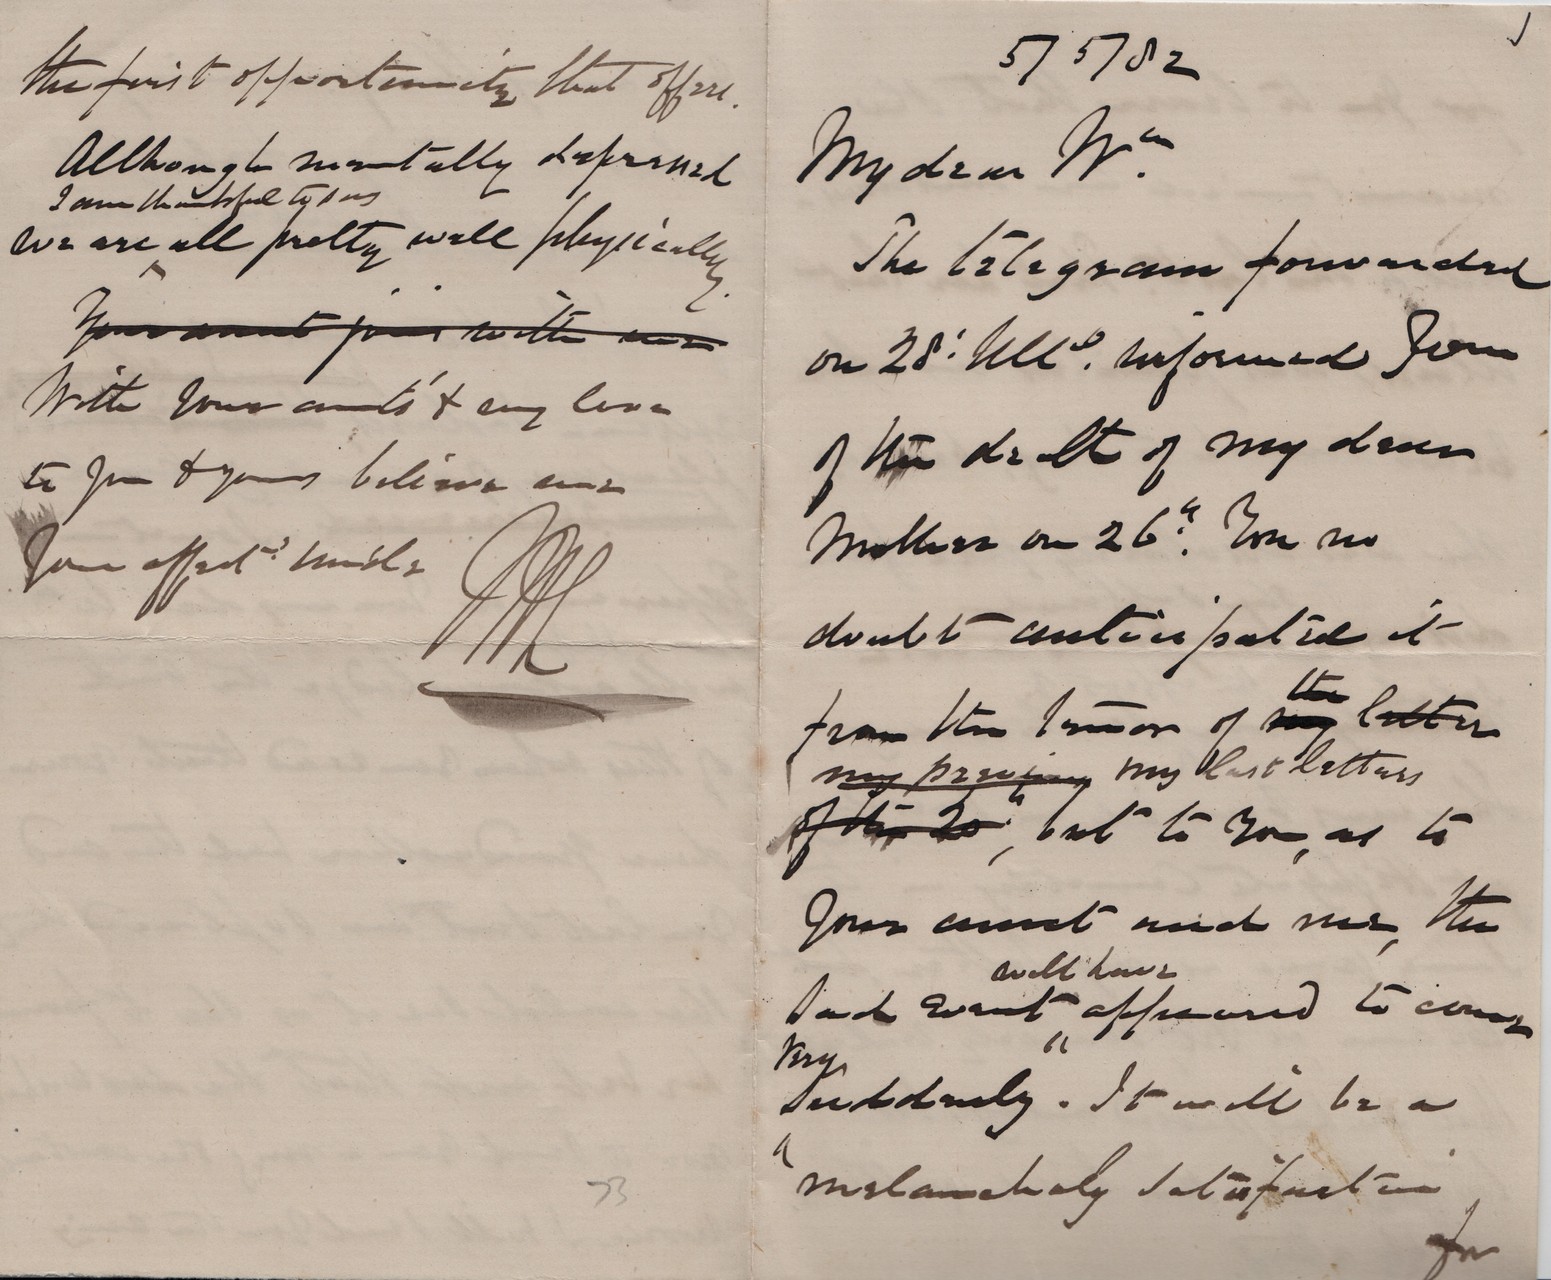 5/5/82
My dear Wm.
The telegram forwarded
on 28th Ullo. informed you
of the death of my dear
Mother on 26th. You no
doubt anticipated it
the
from the tenor of my letters
my previous my last letters
of the 20th, but to you, as to
Your aunt and me, the
will have
sad event appeared to come
very
suddenly. It will be a
melancholy satisfaction
for
the first opportunity that offers.
Although mentally depressed
I am thankful to say
we are all pretty well physically.
Your aunt joins with me
With your aunts' & my love
to you & yours believe me
Your affecte uncle
73